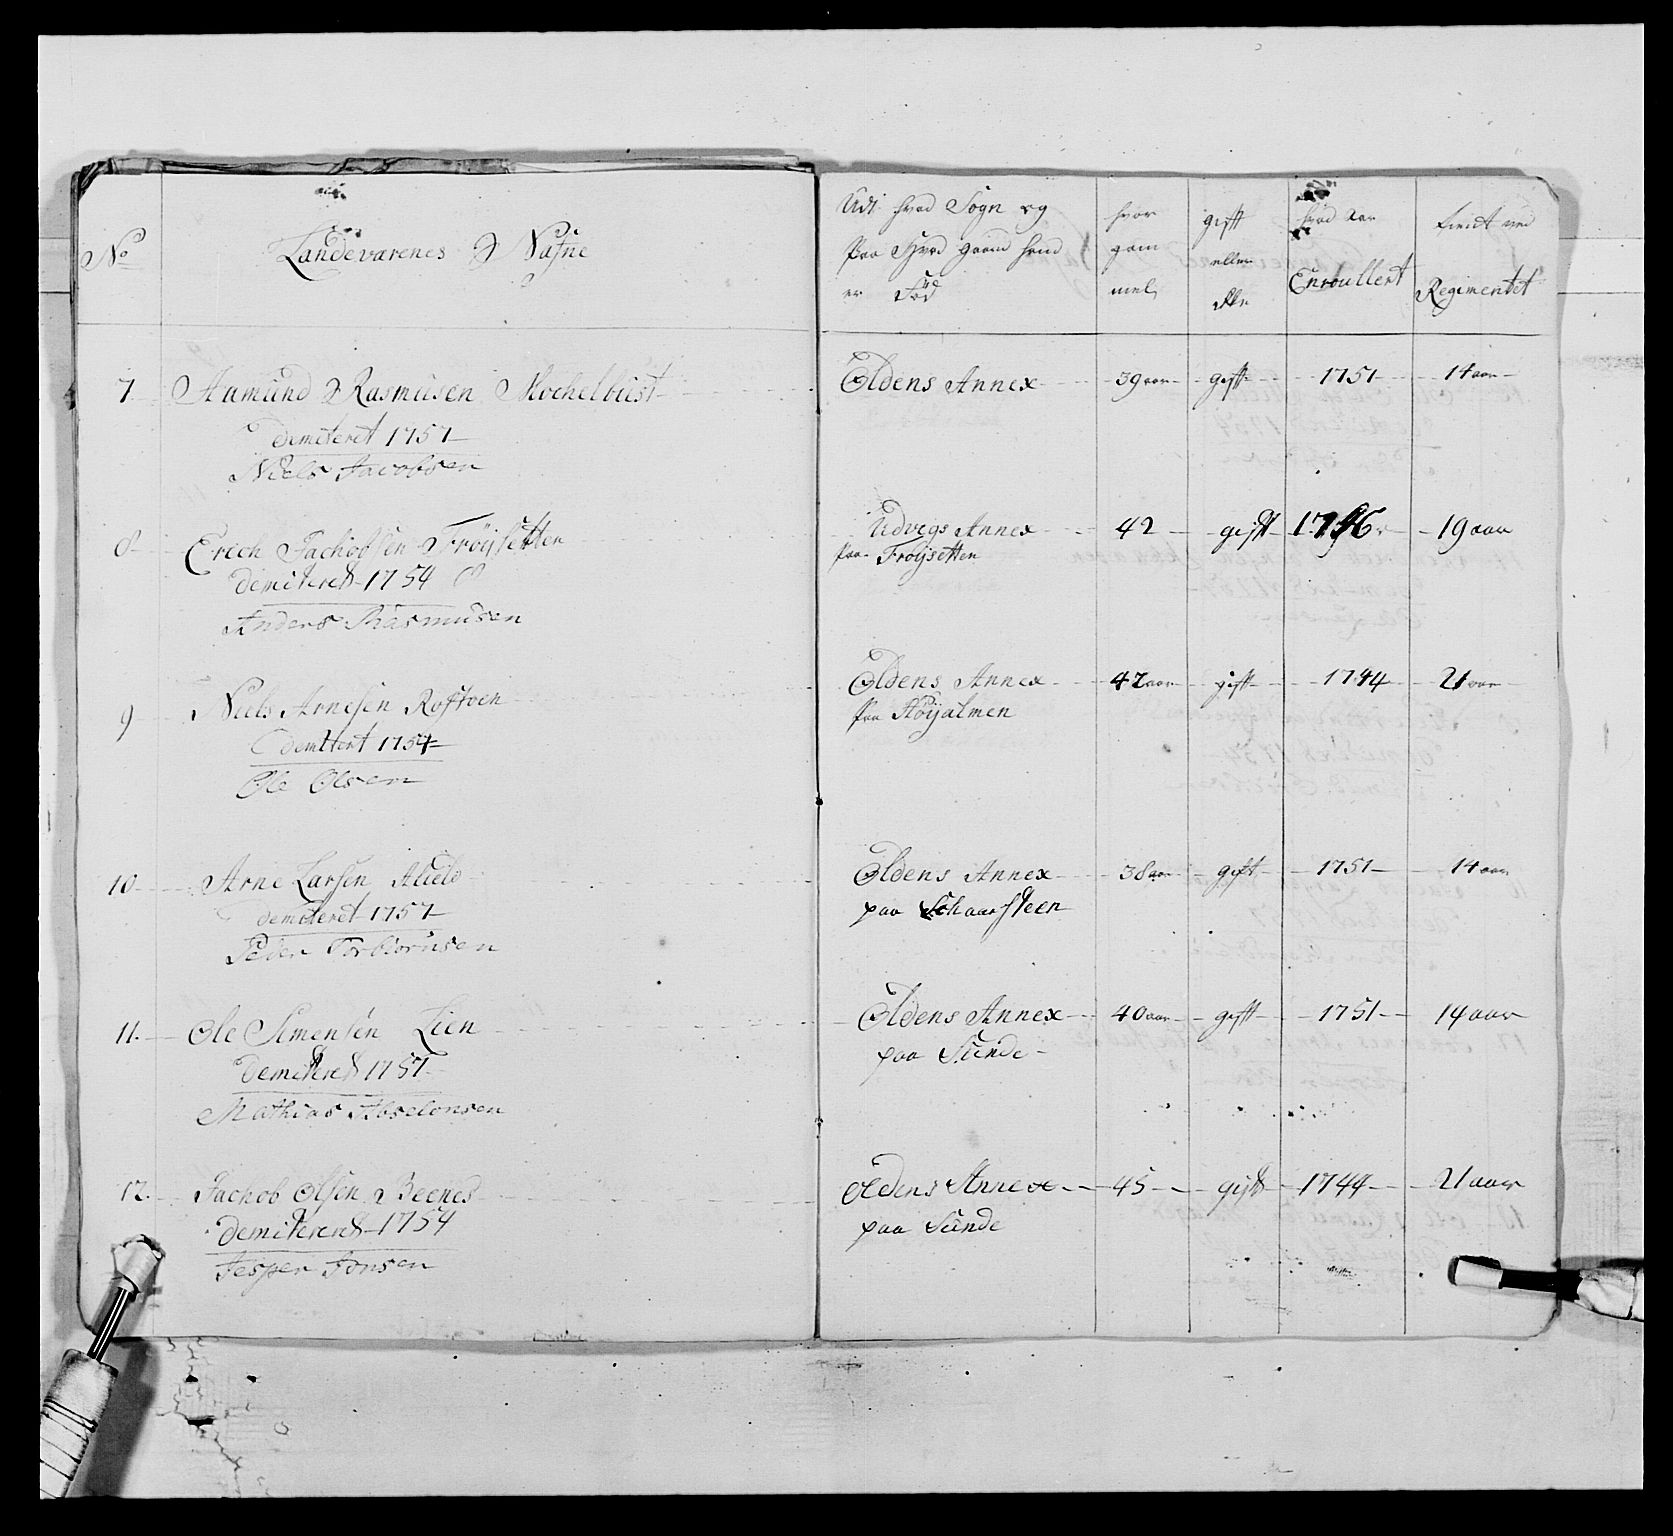 No
Landevarenes Nafne
Udi hvad Sogn og
Paa Hvad gaard hand
er Föd
hvor
gam
mel
gift
eller
ikke
hvad aar
Enroullert
tient ved
Regimentet
7 Aamund Rasmusen Mochelbust Oldens Annex 39 aar gift 1751 14 aar
demiteret 1757
Niels Jacobsen
8 Erich Jachobsen Fröysetten Udvigs Annex 42 gift 1746 19 aar
demiteret 1754 paa Fröysetten
Anders Rasmusen
9 Niels Arnesen Roftoen Oldens Annex 47 aar gift 1744 21 aar
demitert 1754 paa Höyalmen
Ole Olsen
10 Arne Larsen Oldens Annex 38 aar gift 1751 14 aar
demiteret 1757 paa Schaarsteen
Peder Torbiörnsen
11. Ole Simensen Lien Oldens Annex 40 aar gift 1751 14 aar
demiteret 1757 paa Sunde
Mathias Abselonsen
12. Jachob Olsen Beenes Oldens Annex 45 gift 1744 21 aar
demitereret 1754 paa Sunde
Jesper Jonsen